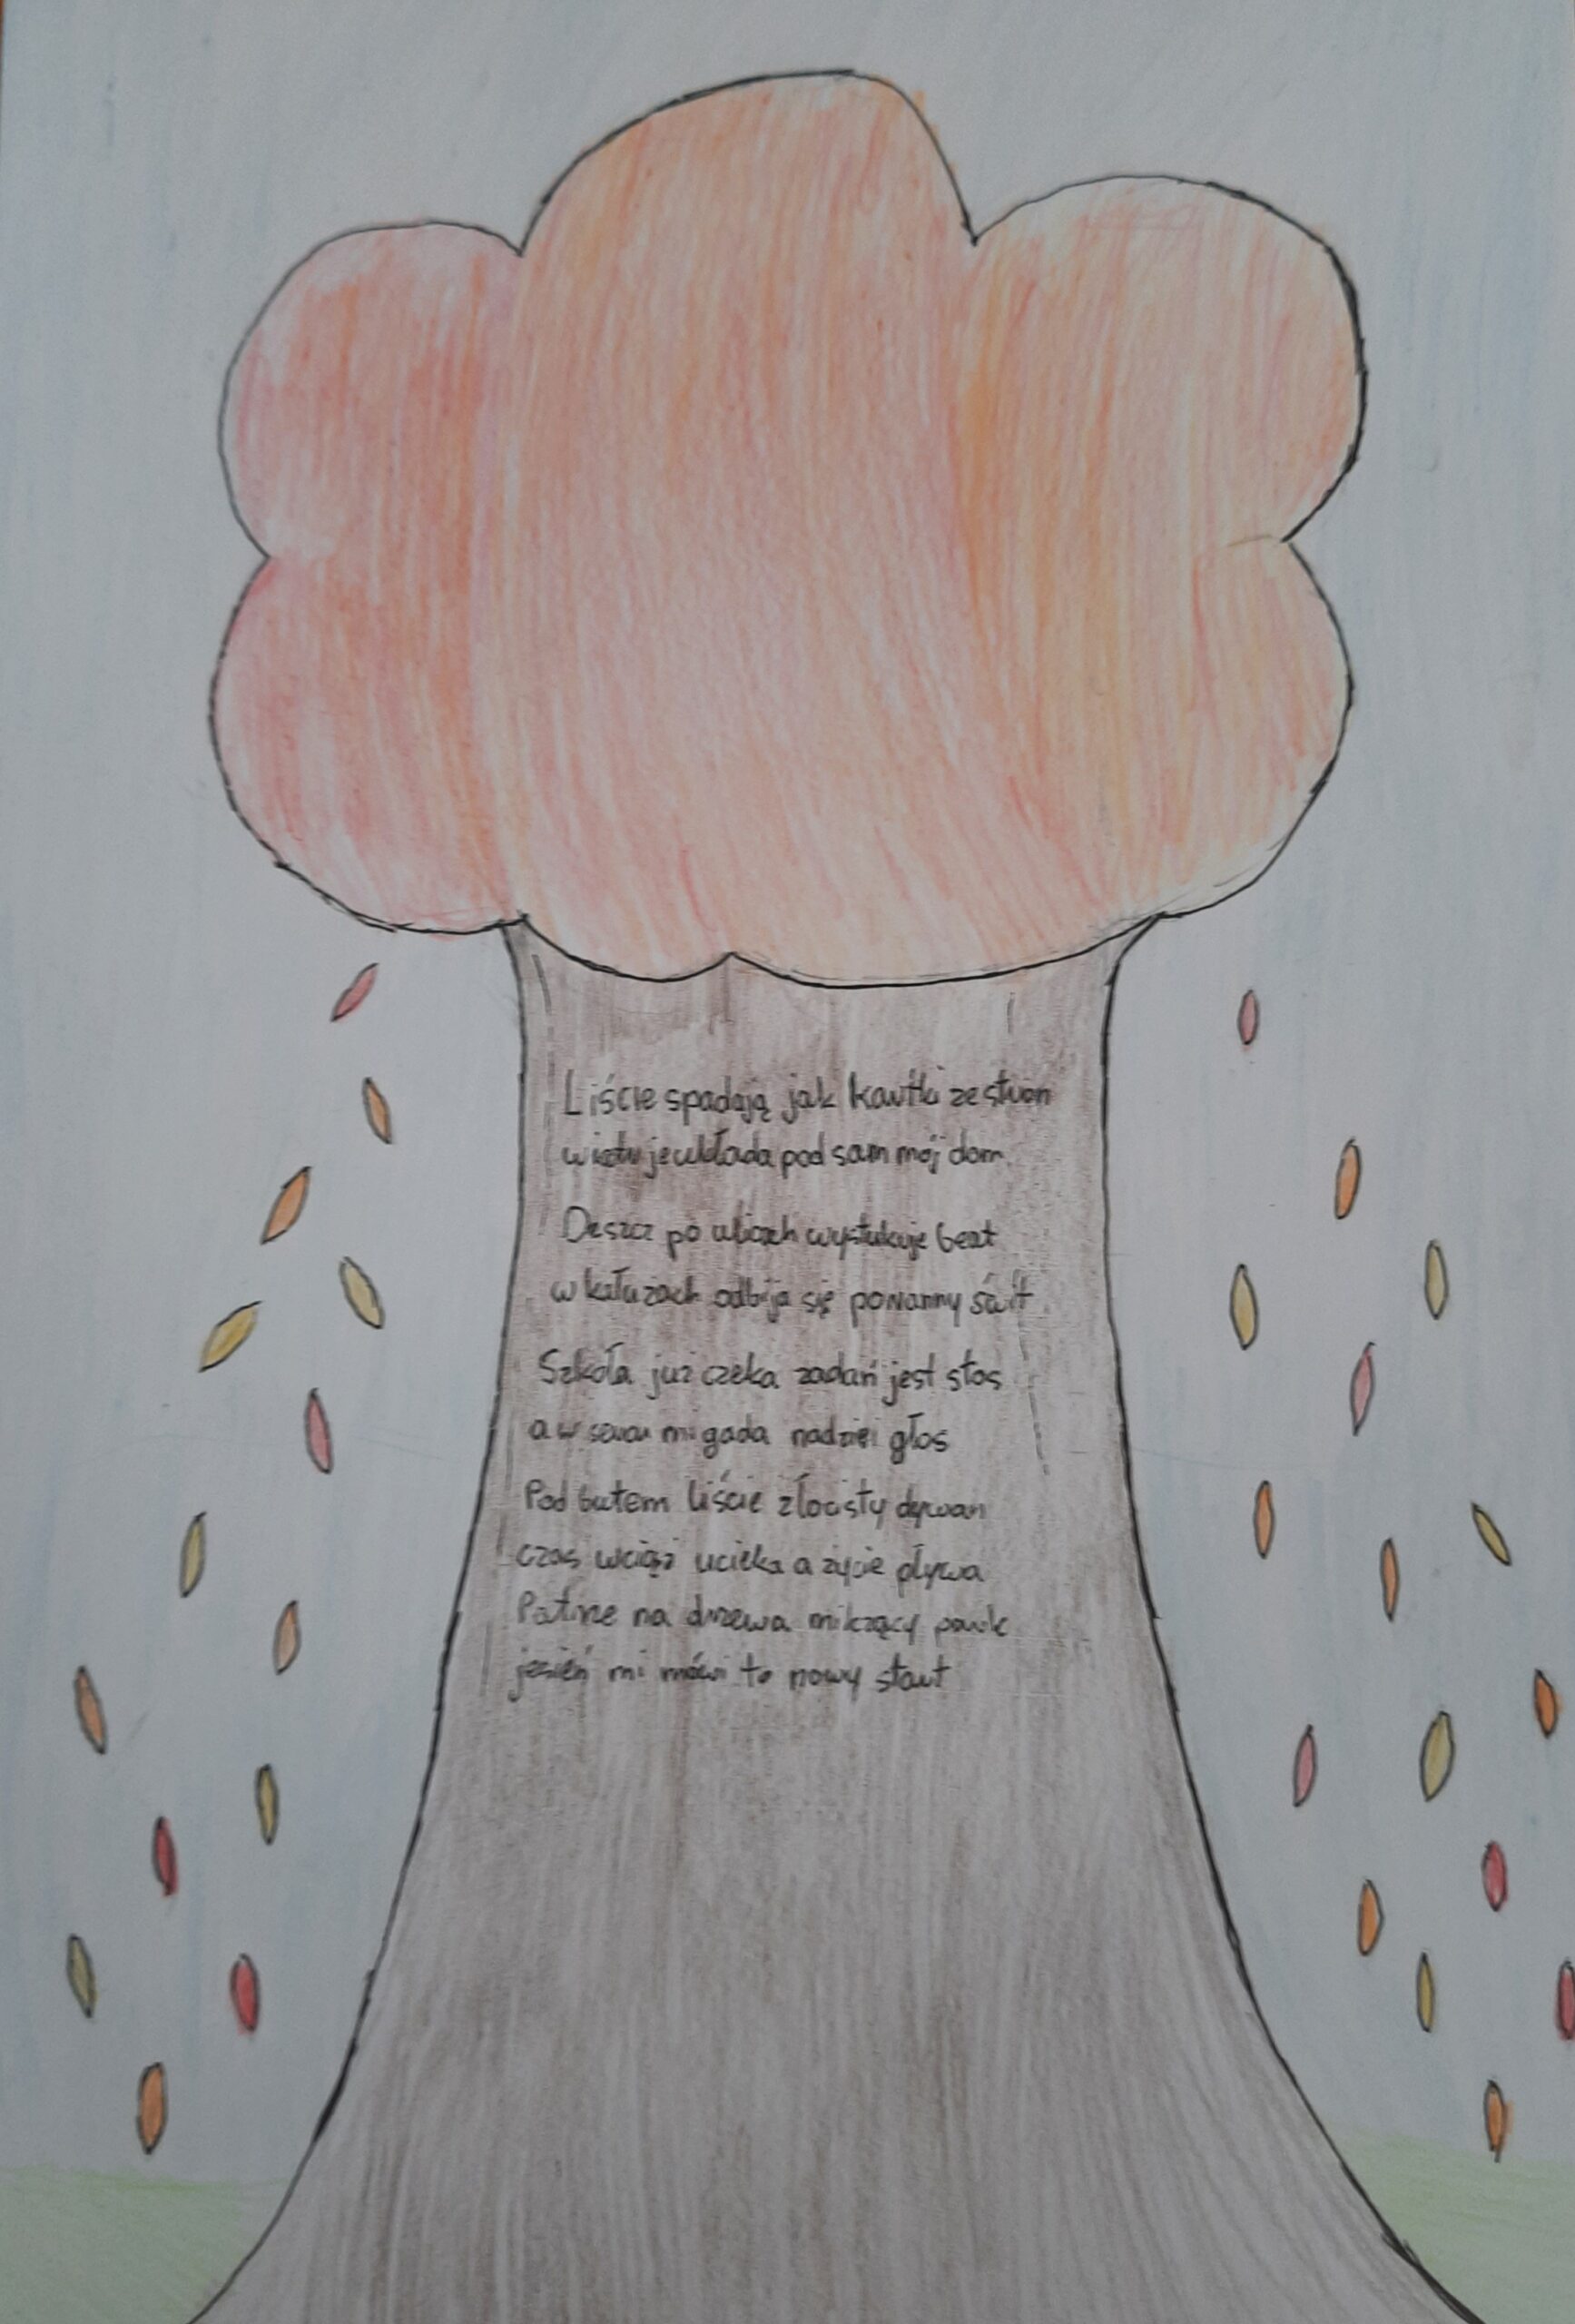 Liście spadają jak kartki ze stron
wiatr je układa pod sam mój dom.
Deszcz po ulicach wystukuje beat
w kałużach odbija się poranny świt.
Szkoła już czeka zadań jest stos
a w sercu mi gada nadziei głos
Pod butem liście złocisty dywan
czas wciąż ucieka a życie pływa
Patrze na drzewa milczący park
jesień mi mówi to nowy start